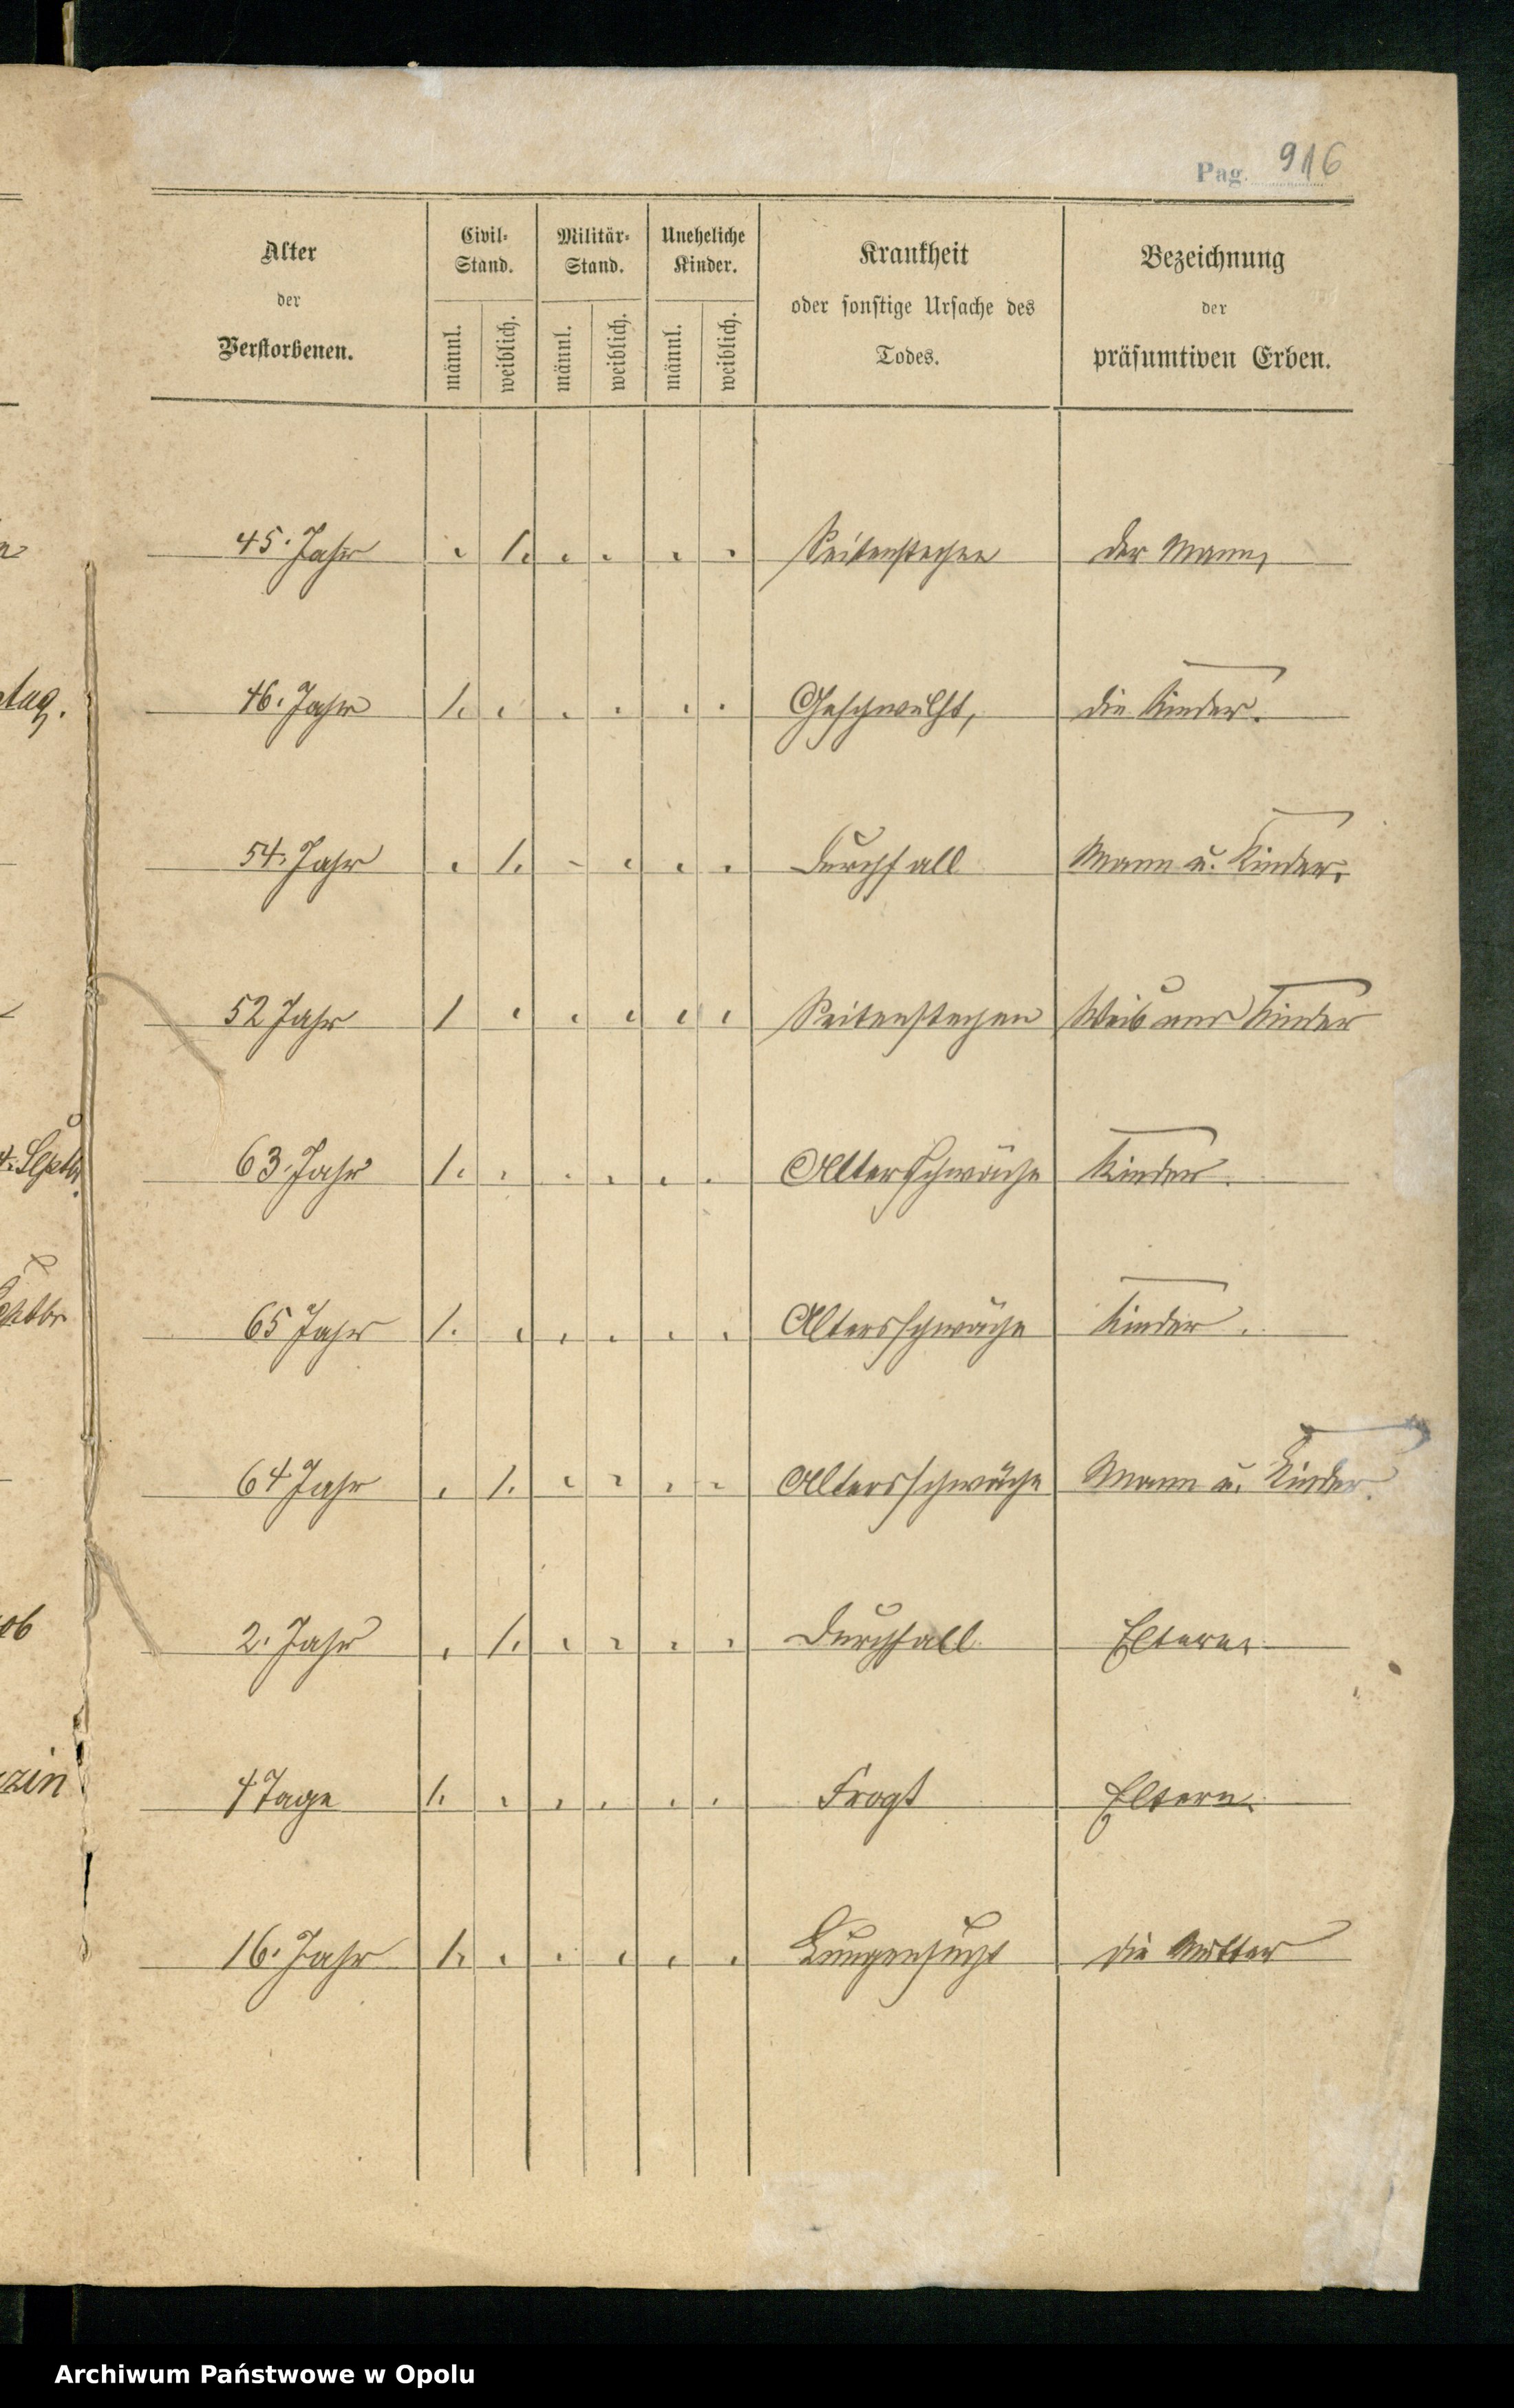 Pag. 916
Alter der Verstorbenen.
Civil-Stand.
Militär-Stand.
Uneheliche Kinder.
Krankheit oder sonstige Ursache des Todes.
Bezeichnung der präsumtiven Erben.
männl. weiblich. männl. weiblich. männl. weiblich.
45. Jahr . 1. . . . . Seitenstechen der Mann,
tag.
46. Jahr 1. . . . . . Geschwulst, die Kinder.
54. Jahr . 1. - . . . Durchfall Mann u. Kinder.
52 Jahr 1 . . . . . Seitenstechen Weib und Kinder
4. Septbr.
63. Jahr 1. . . . . . Altersschwäche Kinder.
eptbr
65 Jahr 1. . . . . . Altersschwäche Kinder.
64 Jahr . 1. . . . . Altersschwäche Mann u. Kinder.
ob
2. Jahr . 1. . . . . Durchfall Eltern.
zin
4 Tage 1. . . . . . Eltern.
16. Jahr 1. . . . . . Lungensucht die Mutter
Archiwum Państwowe w Opolu